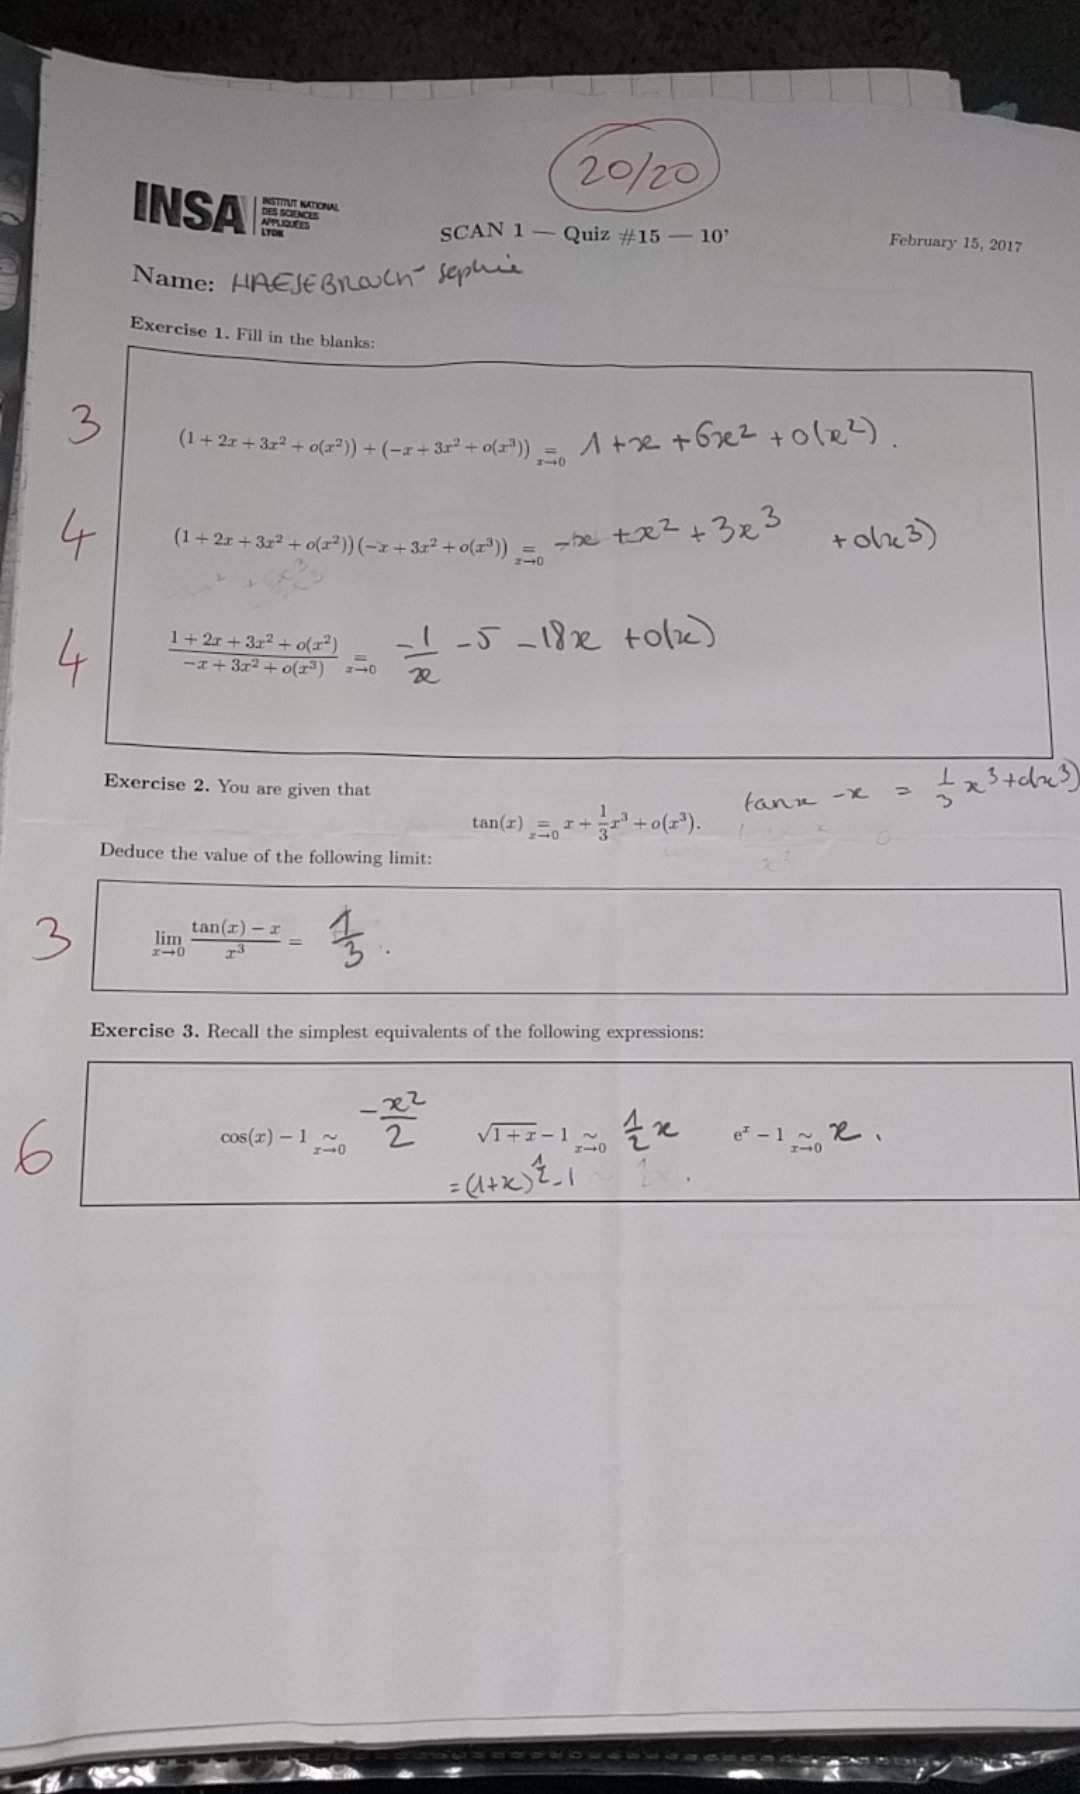 20/20
INSA INSTITUT NATIONAL DES SCIENCES APPLIQUÉES LYON
SCAN 1 — Quiz #15 — 10’
February 15, 2017
Name: Sophie
Exercise 1. Fill in the blanks:
3 (1 + 2x + 3x² + o(x²)) + (−x + 3x² + o(x³)) =_{x→0} 1 + x + 6x² + o(x²).
4 (1 + 2x + 3x² + o(x²))(−x + 3x² + o(x³)) =_{x→0} −x + x² + 3x³ + o(x³)
4 (1 + 2x + 3x² + o(x²))/(−x + 3x² + o(x³)) =_{x→0} −1/x − 5 − 18x + o(x)
Exercise 2. You are given that
tan(x) =_{x→0} x + 1/3 x³ + o(x³). tan x − x = 1/3 x³ + o(x³)
Deduce the value of the following limit:
3 lim_{x→0} (tan(x) − x)/x³ = 1/3.
Exercise 3. Recall the simplest equivalents of the following expressions:
6 cos(x) − 1 ∼_{x→0} −x²/2 √(1 + x) − 1 ∼_{x→0} 1/2 x eˣ − 1 ∼_{x→0} x.
= (1+x)^{1/2} − 1